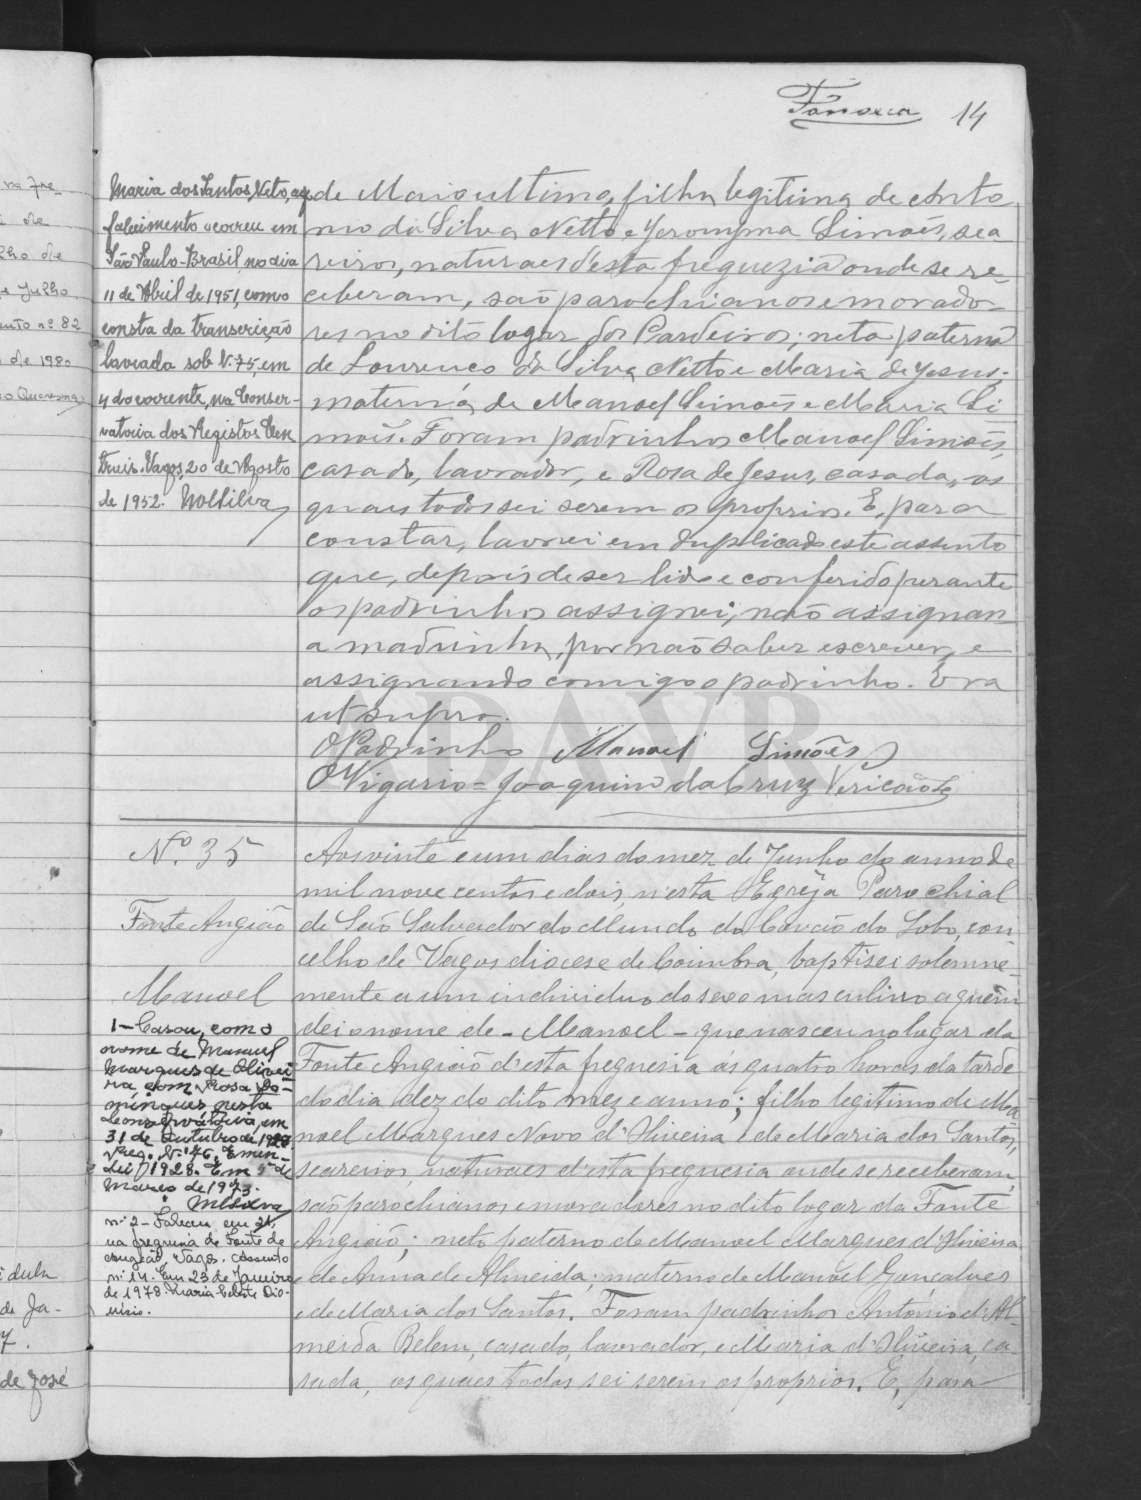 Fonseca 14
Maria dos Santos Neto, cujo
falecimento ocorreu em
São Paulo-Brasil, no dia
11 de Abril de 1951, como
consta da transcrição
lavrada sob N. 75, em
4 do corrente, na Conser-
vatoria dos Registos Cen
trais. Vagos, 20 de Agosto
de 1952.
de Maio ultimo, filha legitima de Anto
nio da Silva Netto e Jeronyma Simões, sea
reiros, naturaes d'esta freguezia onde se re
ceberam, são parochianos e morado-
res no dito logar dos Cardeiros; neta paterna
de Lourenco da Silva Netto e Maria de Jesus;
materna, de Manoel Simões e Maria Si
mões. Foram padrinhos Manoel Simões,
casado, lavrador, e Rosa de Jesus, casada, os
quaes todos sei serem os proprios. E, para
constar, lavrei em duplicado este assento
que, depois de ser lido e conferido perante
os padrinhos assignei, não assignan-
a madrinha, por não saber escrever, e
assignando comigo o padrinho. Era
ut supra.
O Padrinho Manoel Simões
O Vigario = Joaquim da Cruz
N.º 35
Fonte Angião
Manoel
1 - Casou, com o
nome de Manuel
Marques de Olivei
ra com Rosa Do-
mingues nesta
Conservatória, em
31 de Outubro de
Reg. N.º 76.
1928. Em 5 de
Março de 1973.
n.º 2 - Faleceu em 21,
na freguesia de Fonte de
Angeão, Vagos. Assento
n.º 14. Em 23 de Janeiro
de 1978. Maria Celeste Dio-
nisio.
Aos vinte e um dias do mez de Junho do anno de
mil nove centos e dois, n'esta Egreja Parochial
de São Salvador do Mundo do Covão do Lobo, con
celho de Vagos diocese de Coimbra, baptisei solemne-
mente a um individuo do sexo masculino a quem
dei o nome de - Manoel - que nasceu no logar da
Fonte Angião d'esta freguesia ás quatro horas da tarde
do dia dez do dito mez e anno; filho legitimo de Ma
noel Marques Novo d'Oliveira e de Maria dos Santos,
seareiros, naturaes d'esta freguesia onde se receberam,
são parochianos e moradores no dito logar da Fonte
Angião; neto paterno de Manoel Marques d'Oliveira
e de Anna de Almeida; materno de Manoel Gonçalves
e de Maria dos Santos. Foram padrinhos António d'Al-
meida Belem, casado, lavrador, e Maria d'Oliveira, ca-
sada, os quaes todos sei serem os proprios. E, para
ADAVR